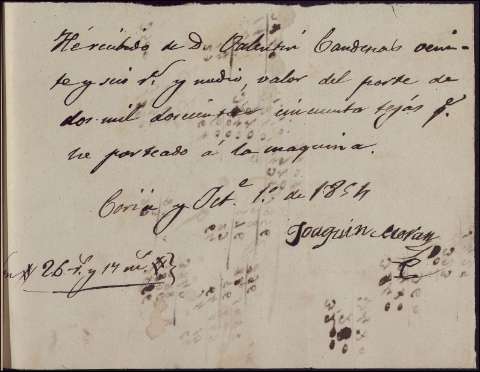 Hé recibido de D. Valentin Candenas vein-
te y seis r.s y medio, valor del porte de
dos mil doscientas cincuenta tejas q.e
he porteado á la maquina.
Coria y Oct.e 1.o de 1854
Joaquin Moran
Son # 26 r.s y 17 m.s #